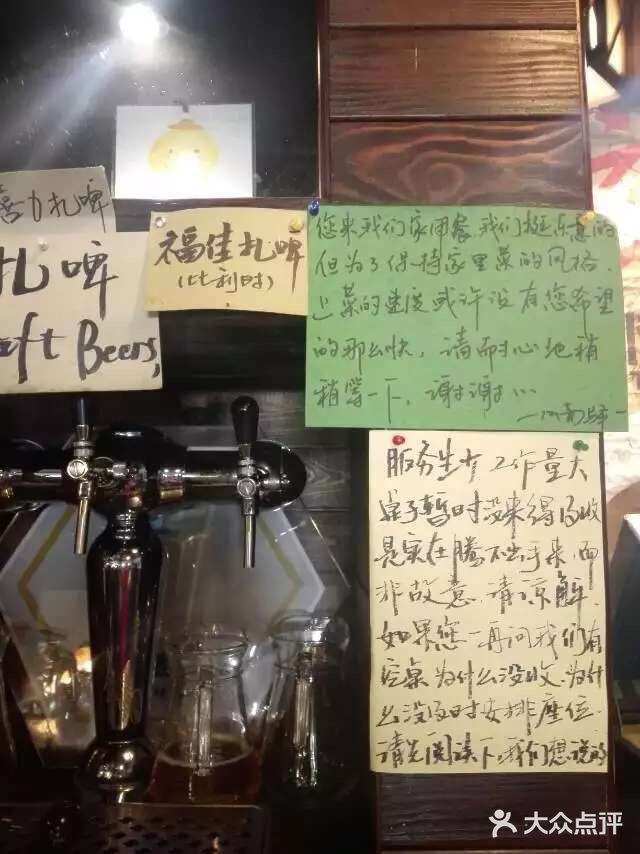 喜力扎啤
扎啤
Craft Beers,
福佳扎啤
(比利时)
您来我们家用餐,我们挺乐意的
但为了保持家里菜的风格,
上菜的速度或许没有您希望
的那么快,请耐心地稍
稍等一下,谢谢!
服务生少 工作量大
桌子暂时没来得及收
是实在腾不出手来,而
非故意,请谅解.
如果您一再问我们有
空桌为什么没收,为什
么没及时安排座位.
请先阅读下,我们想说的
大众点评